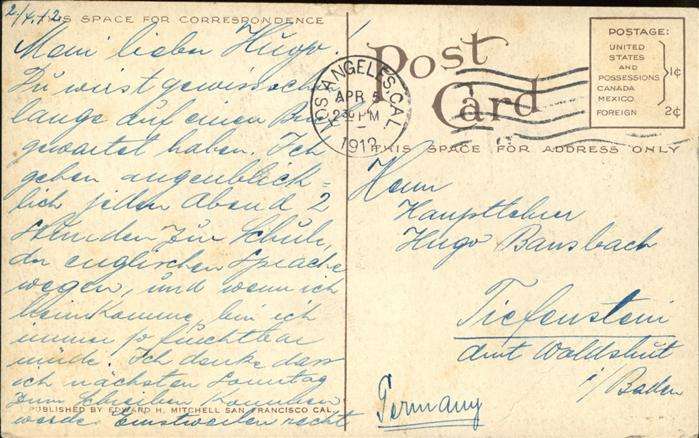 2/4.12
THIS SPACE FOR CORRESPONDENCE
Mein lieber Hugo!
Du wirst gewiss schon
lange auf einen Brief
gewartet haben. Ich
gehen augenblick=
lich jeden Abend 2
Stunden zur Schule,
der englischen Sprache
wegen, und wenn ich
heimkomme, bin ich
immer so furchtbar
müde. Ich denke dass
ich nächsten Sonntag
zum Schreiben kommen
PUBLISHED BY EDWARD H. MITCHELL SAN FRANCISCO CAL.
werde. Einstweilen recht
Post
Card
LOS ANGELES, CAL.
APR 5
2 30 PM
1912
POSTAGE:
UNITED
STATES
AND
POSSESSIONS
CANADA
MEXICO
1¢
FOREIGN 2¢
THIS SPACE FOR ADDRESS ONLY
Herrn
Hauptlehrer
Hugo Bansbach
Tiefenstein
Amt Waldshut
i/Baden
Germany